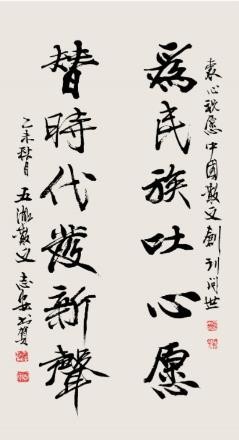 衷心祝愿中國散文創刊问世
爲民族吐心愿
替時代發新聲
乙未秋月 五洲散文 志安书贺